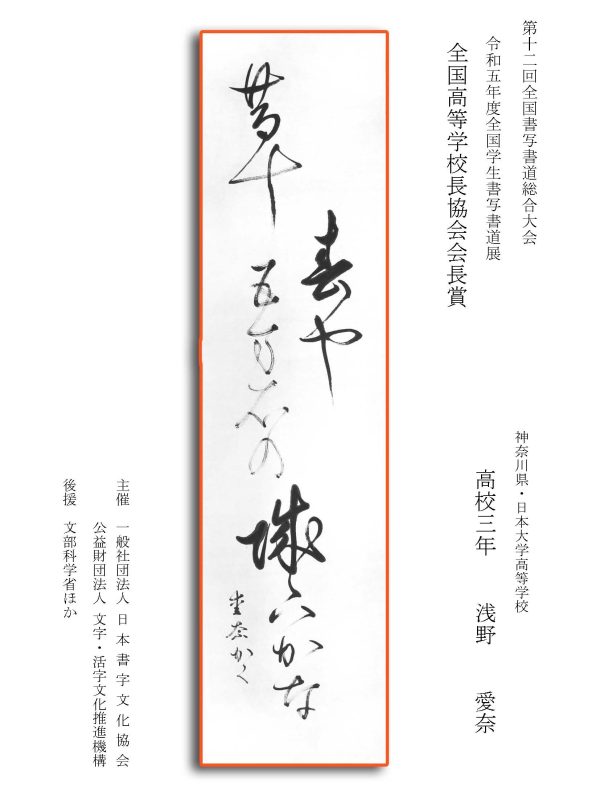 第十二回全国書写書道総合大会
令和五年度全国学生書写書道展
全国高等学校長協会会長賞
神奈川県・日本大学高等学校
高校三年 浅野 愛奈
春や
昔十
五万石の
城下かな
愛奈かく
主催 一般社団法人 日本書字文化協会
公益財団法人 文字・活字文化推進機構
後援 文部科学省ほか